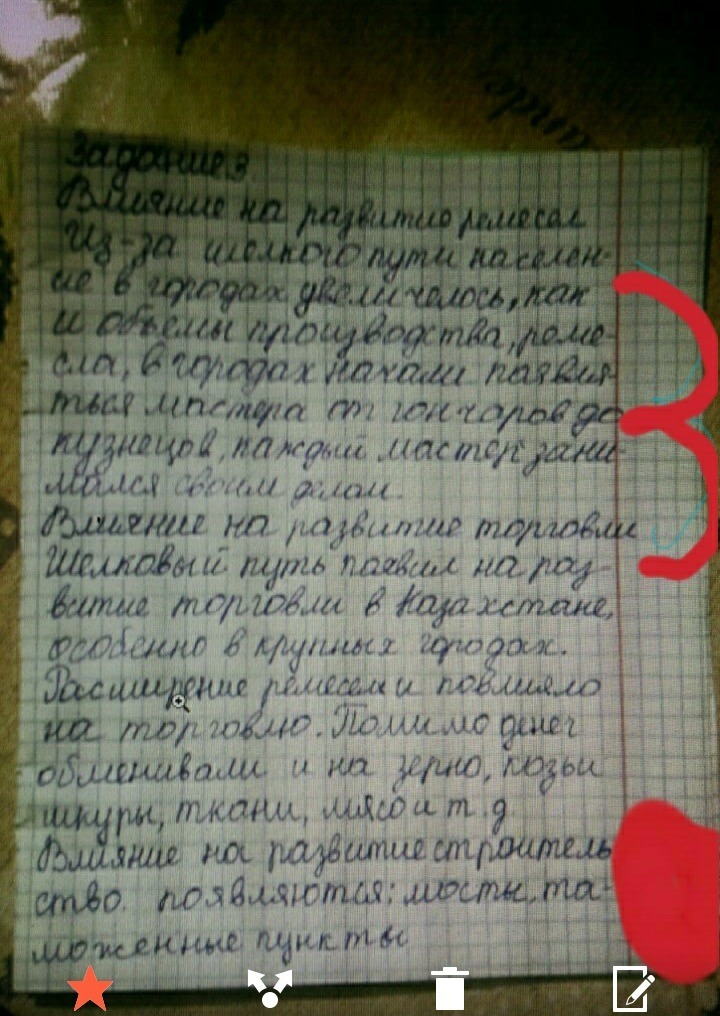 Задание 3
Влияние на развитие ремесел
Из-за шелкого пути населен-
ие в городах увеличелось, как
и объемы производства, реме-
сла, в городах начали появля-
ться мастера от гончаров до
кузнецов, каждый мастер зани-
мался своим делом.
Влияние на развитие торговли
Шелковый путь повлял на раз-
витие торговли в Казахстане,
особенно в крупных городах.
Расширение ремесел и повлияло
на торговлю. Помимо денег
обменивали и на зерно, козьи
шкуры, ткани, мясо и т.д
Влияние на развитие строитель
ство. появляются: мосты, та-
моженные пункты
3